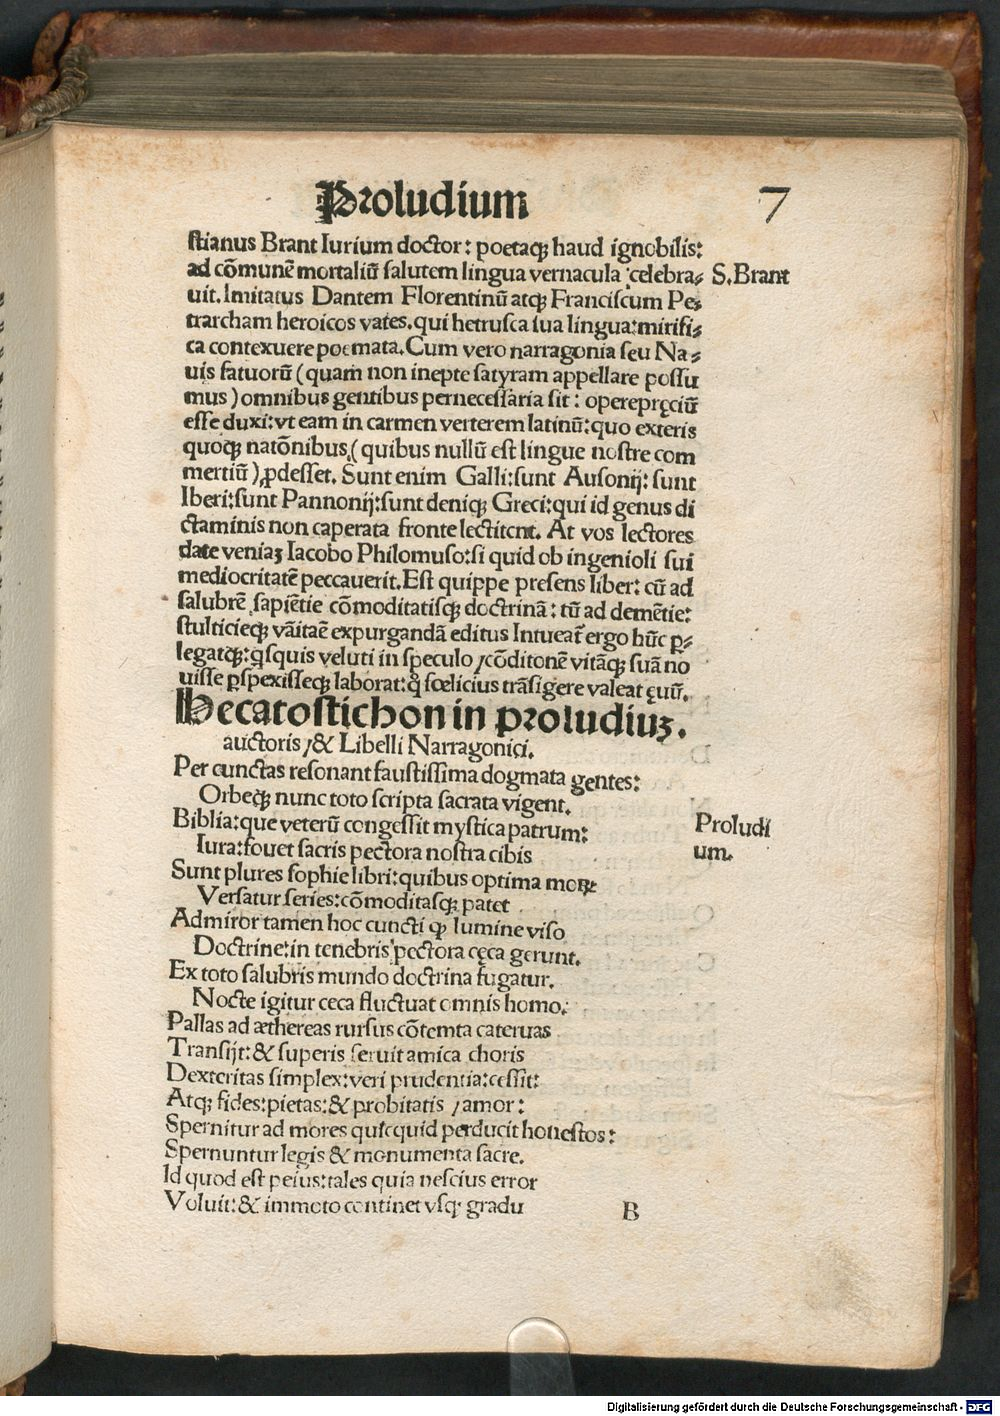 Proludium
7
stianus Brant Iurium doctor: poetaqꝫ haud ignobilis:
ad cōmunē mortaliū salutem lingua vernacula celebra⸗
S. Brant
uit. Imitatus Dantem Florentinū atqꝫ Franciscum Pe⸗
trarcham heroicos vates. qui hetrusca sua lingua: mirifi⸗
ca contexuere poemata. Cum vero narragonia seu Na⸗
uis fatuorū (quam non inepte satyram appellare possu
mus) omnibus gentibus pernecessaria sit: operepręciū
esse duxi: vt eam in carmen verterem latinū: quo exteris
quoqꝫ natōnibus, (quibus nullū est lingue nostre com
mertiū) ꝓdesset. Sunt enim Galli: sunt Ausonij: sunt
Iberi: sunt Pannonij: sunt deniqꝫ Greci: qui id genus di
ctaminis non caperata fronte lectitent. At vos lectores
date veniaꝫ Iacobo Philomuso: si quid ob ingenioli sui
mediocritatē peccauerit. Est quippe presens liber: cū ad
salubrē sapiētie cōmoditatisqꝫ doctrinā: tū ad demētie:
stulticieqꝫ vāitaē expurgandā editus Intueat᷑ ergo hūc ꝑ⸗
legatqꝫ: qͥsquis veluti in speculo / cōditonē vitāqꝫ suā no
uisse ꝑspexisseqꝫ laborat: qͦ fœlicius trāsigere valeat ęuū.
Hecatostichon in proludiuꝫ.
auctoris / & Libelli Narragonici.
Per cunctas resonant faustissima dogmata gentes:
Orbeqꝫ nunc toto scripta sacrata vigent.
Biblia: que veterū congessit mystica patrum:
Proludi
um.
Iura: fouet sacris pectora nostra cibis
Sunt plures sophie libri: quibus optima moꝝ
Versatur series: cōmoditasqꝫ patet
Admiror tamen hoc cuncti qꝫ lumine viso
Doctrine: in tenebris pectora cęca gerunt.
Ex toto salubris mundo doctrina fugatur.
Nocte igitur ceca fluctuat omnis homo:
Pallas ad æthereas rursus cōtemta cateruas
Transijt: & superis seruit amica choris
Dexteritas simplex: veri prudentia: cessit:
Atqꝫ fides: pietas: & probitatis / amor:
Spernitur ad mores quicquid perducit honestos:
Spernuntur legis & monumenta sacre.
Id quod est peius: tales quia nescius error
Voluit: & immoto continet vsqꝫ gradu
B
Digitalisierung gefördert durch die Deutsche Forschungsgemeinschaft - DFG